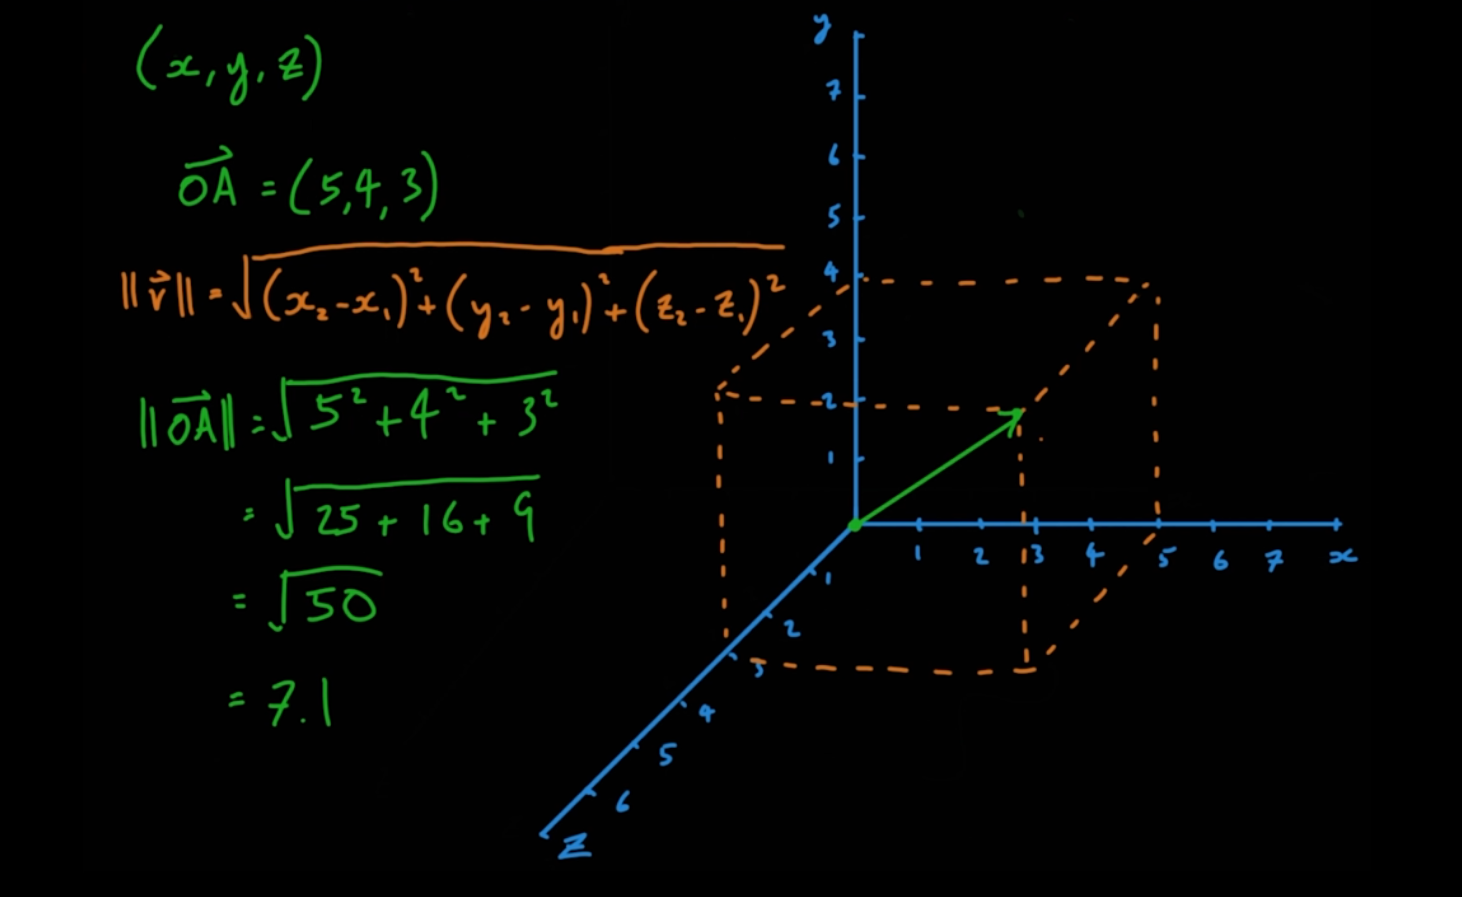 (x, y, z)
OA = (5, 4, 3)
||v|| = √(x₂ - x₁)² + (y₂ - y₁)² + (z₂ - z₁)²
||OA|| = √5² + 4² + 3²
= √25 + 16 + 9
= √50
= 7.1
y
7
6
5
4
3
2
1
1 2 3 4 5 6 7 x
1
2
3
4
5
6
z